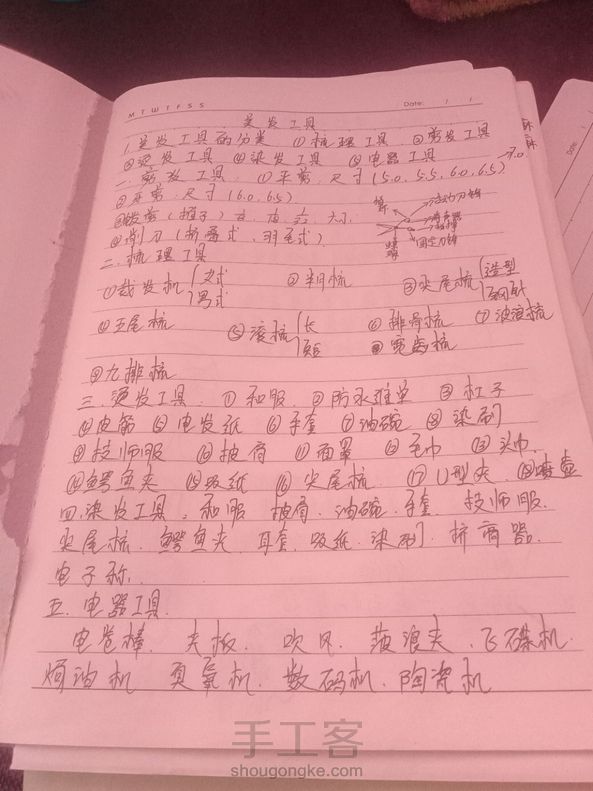 M T W T F S S
Date: / /
美发工具
1.美发工具的分类 ①梳理工具 ②剪发工具
③烫发工具 ④染发工具 ⑤电器工具
一.剪发工具. ①平剪.尺寸(5.0、5.5、6.0、6.5) 7.0
②牙剪.尺寸(6.0,6.5)
④削刀(折叠式、羽毛式)
固定刀锋
二.梳理工具
①裁发机{女式 男式 ③尖尾梳{造型 钢针
④五尾梳 ⑤滚梳{长 短 ⑥排骨梳 ⑦波浪梳
宽齿梳
⑨九排梳
三.烫发工具. ①和服 ②防水推单 ③杠子
④皮筋 ⑤电发纸 ⑥手套 ⑦油碗 ⑧染刷
⑨技师服 ⑩披肩 ⑪面罩 ⑫毛巾 ⑬头巾.
⑭鳄鱼夹 ⑮吸纸 ⑯尖尾梳 ⑰U型夹 ⑱喷壶
四.染发工具. 和服 披肩.油碗.手套.技师服.
尖尾梳.鳄鱼夹.耳套.吸纸.染刷.挤膏器.
电子称.
五.电器工具.
电卷棒、夹板、吹风、波浪夹、飞碟机.
焗油机 负氧机、数码机.陶瓷机
手工客
shougongke.com